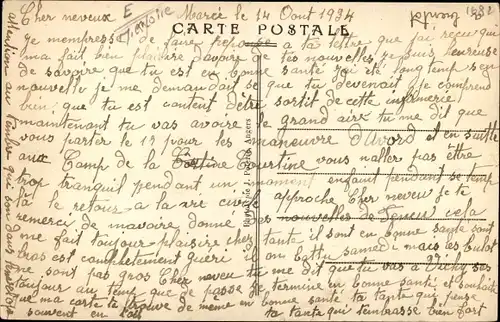 Marcé le 14 Oout 1934
E
Tiercoire
1681
CARTE POSTALE
Cher neveux
je mempresse de faire reponse a ta lettre que jai recu qui
ma fait bien plaisire davoire de tes nouvelles je suis heureuse
de savoire que tu est en bonne santé jai été longtemp sen
nouvelle je me demandait se que tu devenait je comprend
bien que tu est content detre sortit de cette infirmerie
maintenant tu vas avoire le grand air tu me dit que
vous parter le 13 pour les maneuvre d'avord et en suitte
aux Camp de la Courtine vous naller pas être
trop tranquil pendant un moment enfant pendant se temp
là le retour a la vie civil approche Cher neveu je te
remerci de mavoire donné des nouvelles de cela
me fait toujour plaisire cher tante il sont en bonne santé sont
bras est complètement guéri il on battu samedi mais les bulots
ne sont pas gros Cher neveu tu me dit que tu vas a Vichy
toujour au temp que de passe je termine en bonne santé et souhaite
que ma carte te trouve de même en bonne santé ta tante qui pense
souvent en toit tante qui t'embrasse bien fort
attention au timbre qui son dans lenveloppe
Edit. J. Angers